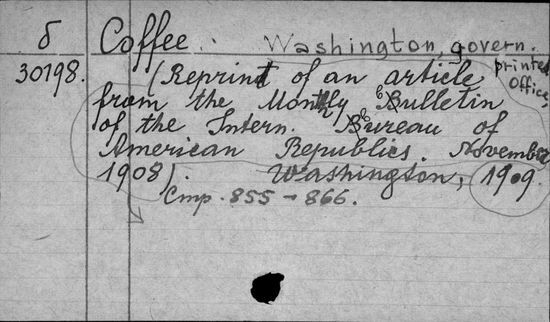 б Coffee. Washington, govern.
printed
office,
30198. (Reprint of an article
from the Monthly Bulletin
of the Intern. Bureau of
American Republics. November
1908). Washington, 1909.
Стр. 855-866.